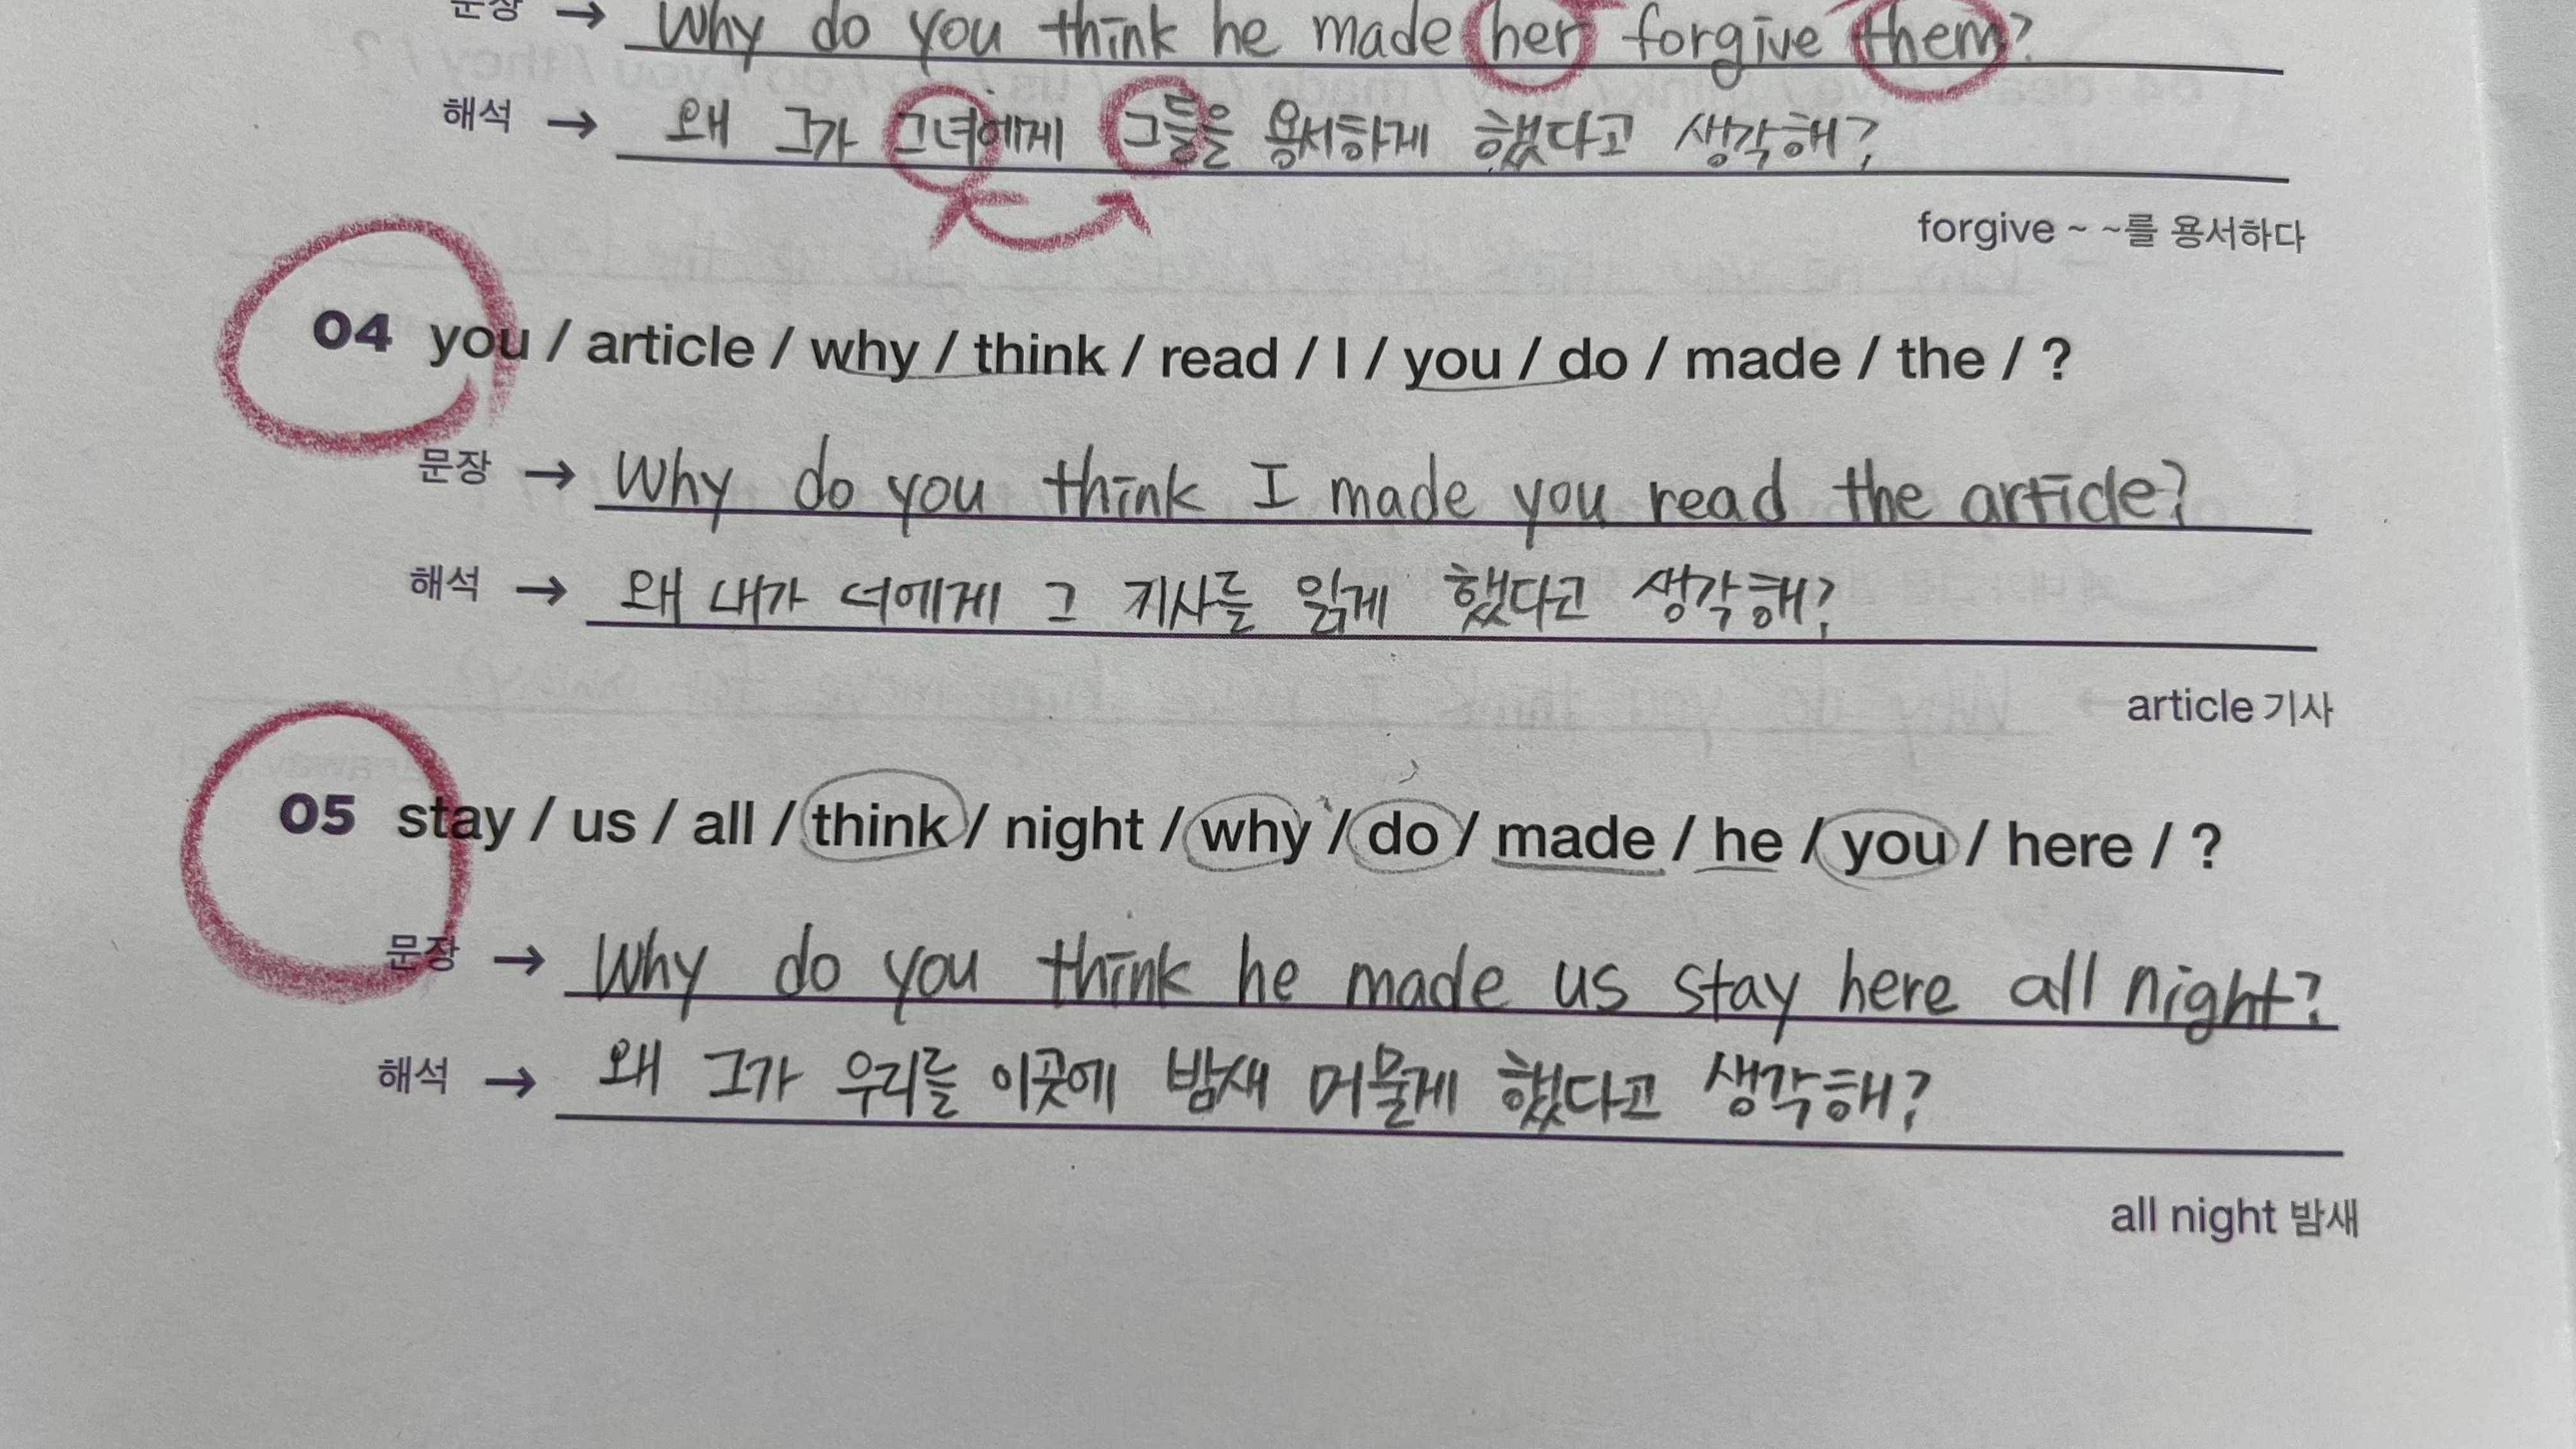 문장 → Why do you think he made her forgive them?
해석 → 왜 그가 그녀에게 그들을 용서하게 했다고 생각해?
forgive ~ ~를 용서하다
04 you / article / why / think / read / I / you / do / made / the / ?
문장 → Why do you think I made you read the article?
해석 → 왜 내가 너에게 그 기사를 읽게 했다고 생각해?
article 기사
05 stay / us / all / think / night / why / do / made / he / you / here / ?
문장 → Why do you think he made us stay here all night?
해석 → 왜 그가 우리를 이곳에 밤새 머물게 했다고 생각해?
all night 밤새